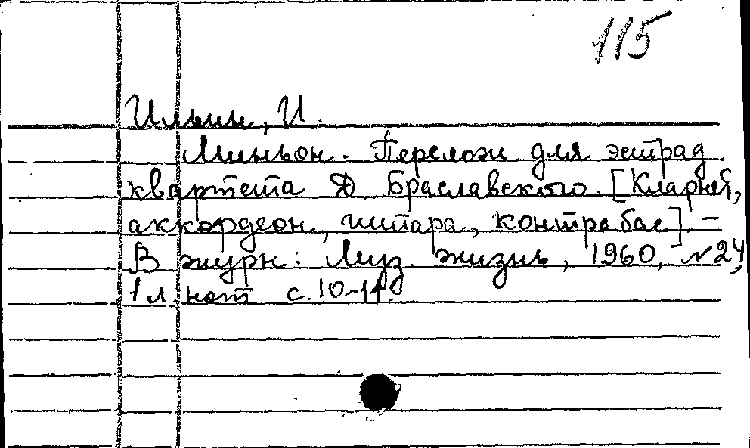 115
Ильин, И.
Миньон. Перелож для эстрад.
квартета Д. Браславского. [Кларнет,
аккордеон, гитара, контрабас]. –
В журн: Муз. жизнь, 1960, №24,
1л. нот с. 10-11.